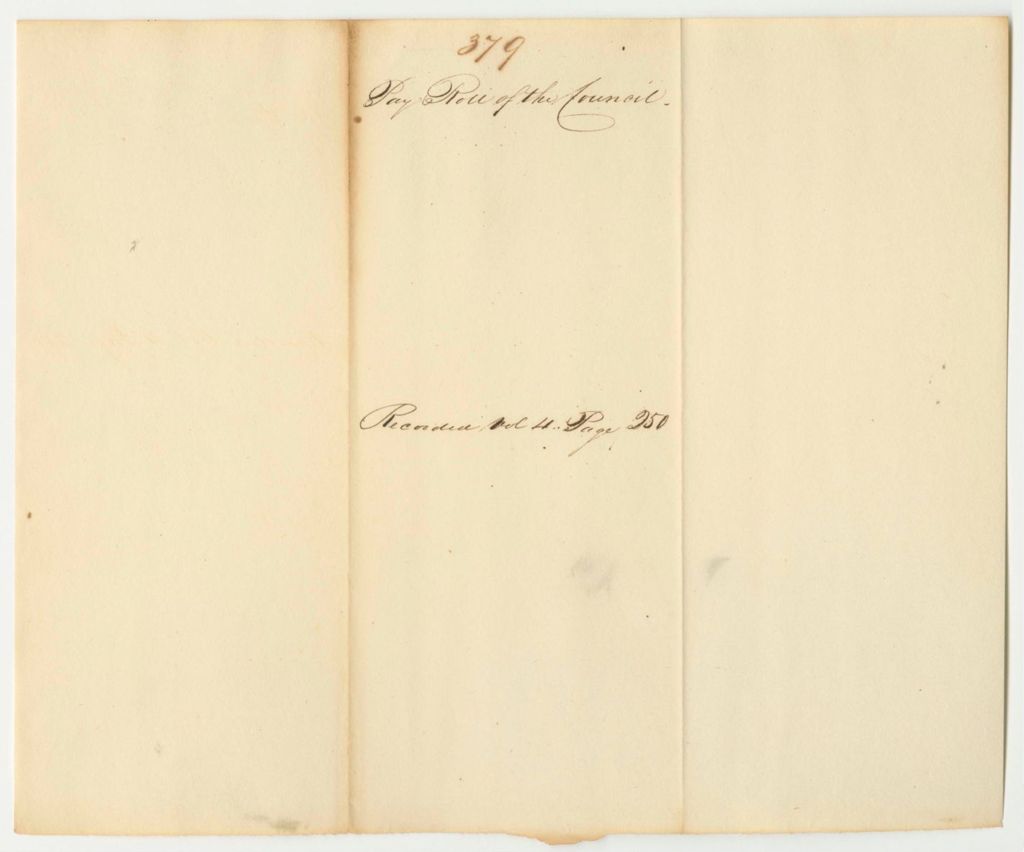 379
Pay Roll of the Council.
Recorded Vol 4. Page 250